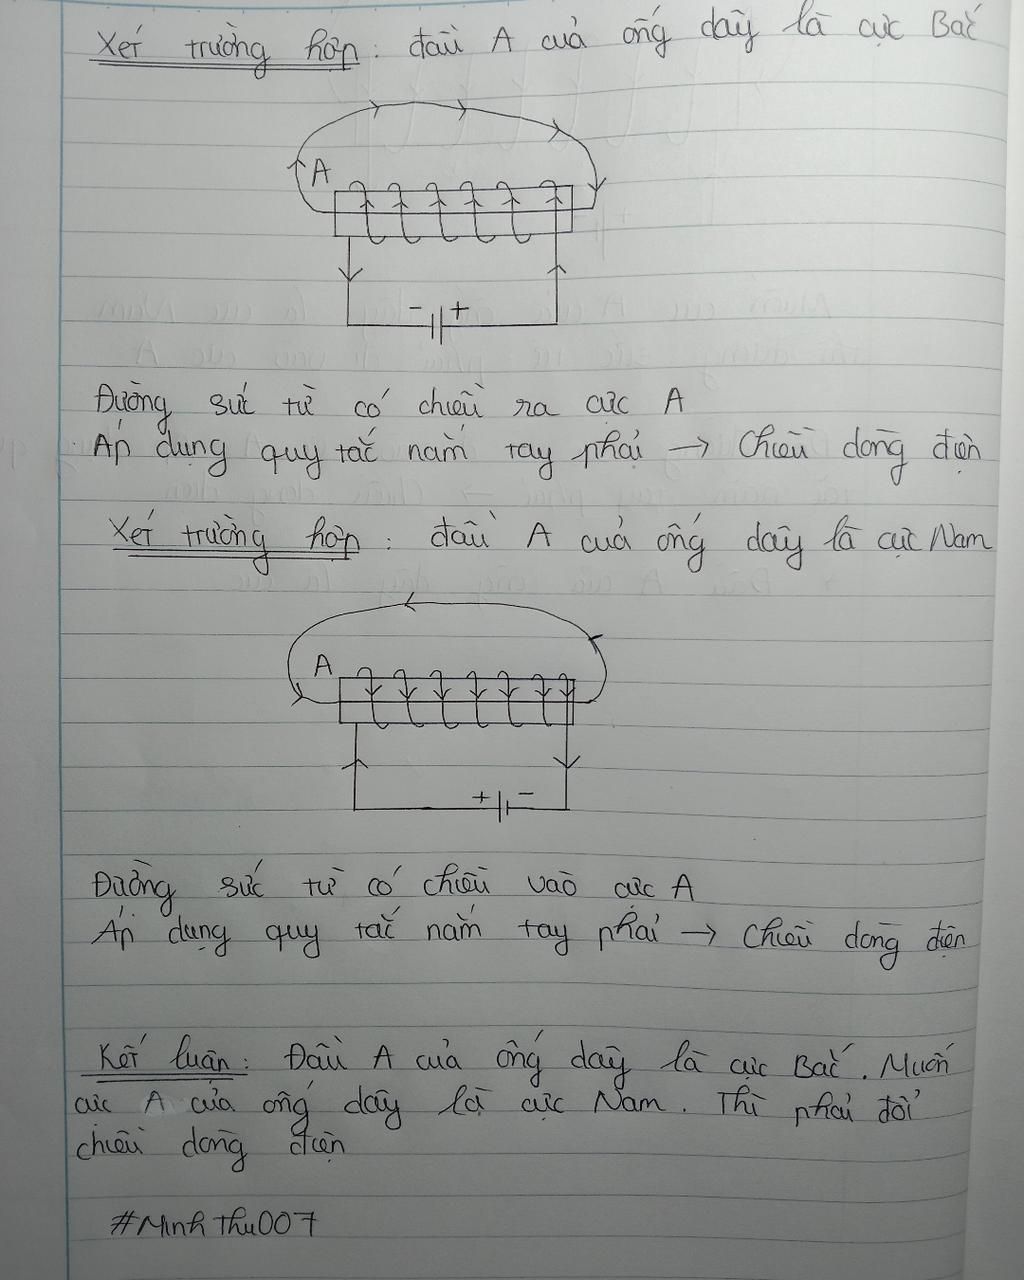 Xét trường hợp: đầu A của ống dây là cực Bắc
A
- +
Đường sức từ có chiều ra cực A
Áp dụng quy tắc nắm tay phải → Chiều dòng điện
Xét trường hợp: đầu A của ống dây là cực Nam
A
+ -
Đường sức từ có chiều vào cực A
Áp dụng quy tắc nắm tay phải → Chiều dòng điện
Kết luận: Đầu A của ống dây là cực Bắc. Muốn
cực A của ống dây là cực Nam. Thì phải đổi
chiều dòng điện
#MinhThu007